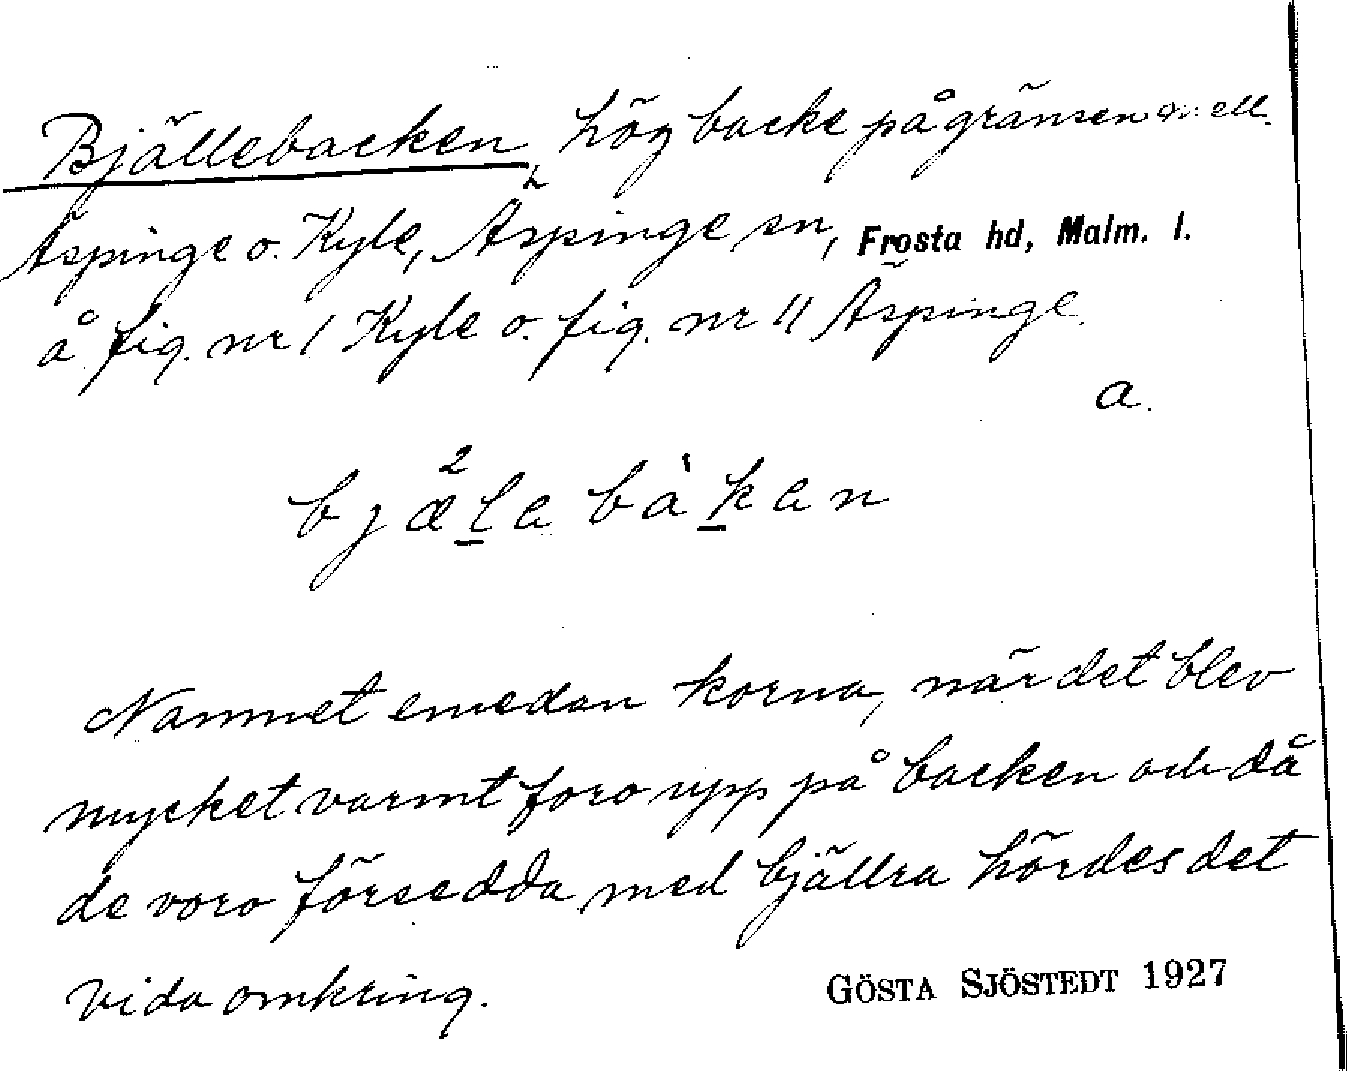 Bjällebacken, hög backe på gränsen mell.
Äspinge o. Kyle, Äspinge sn, Frosta hd, Malm. l.
å fig. nr 1 Kyle o. fig. nr 11 Äspinge.
a.
bjælabàkan
Namnet emedan korna, när det blev
mycket varmt foro upp på backen och då
de voro försedda med bjällra hördes det
vida omkring.
GÖSTA SJÖSTEDT 1927